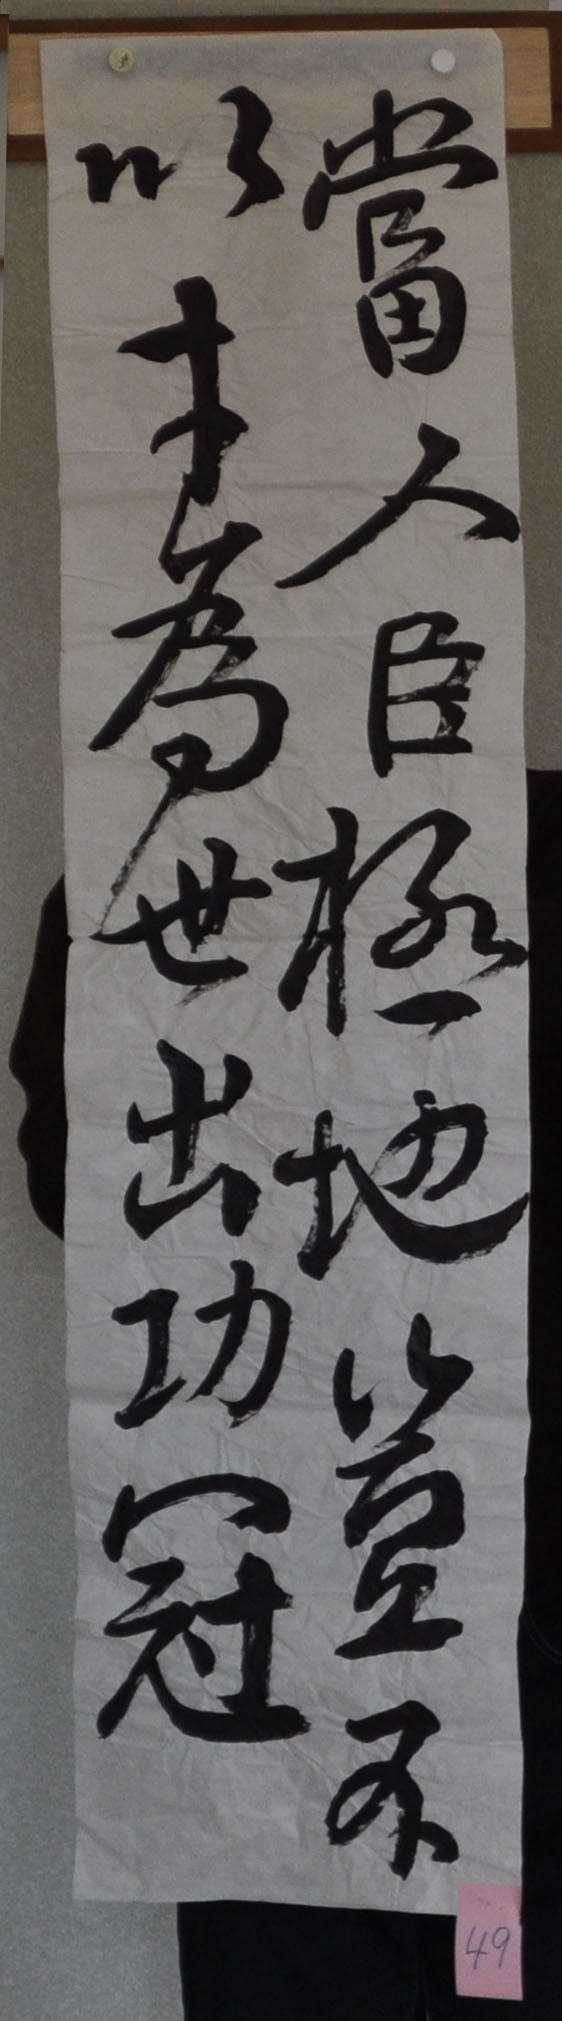 當人臣極地豈不
以才為世出功冠
49